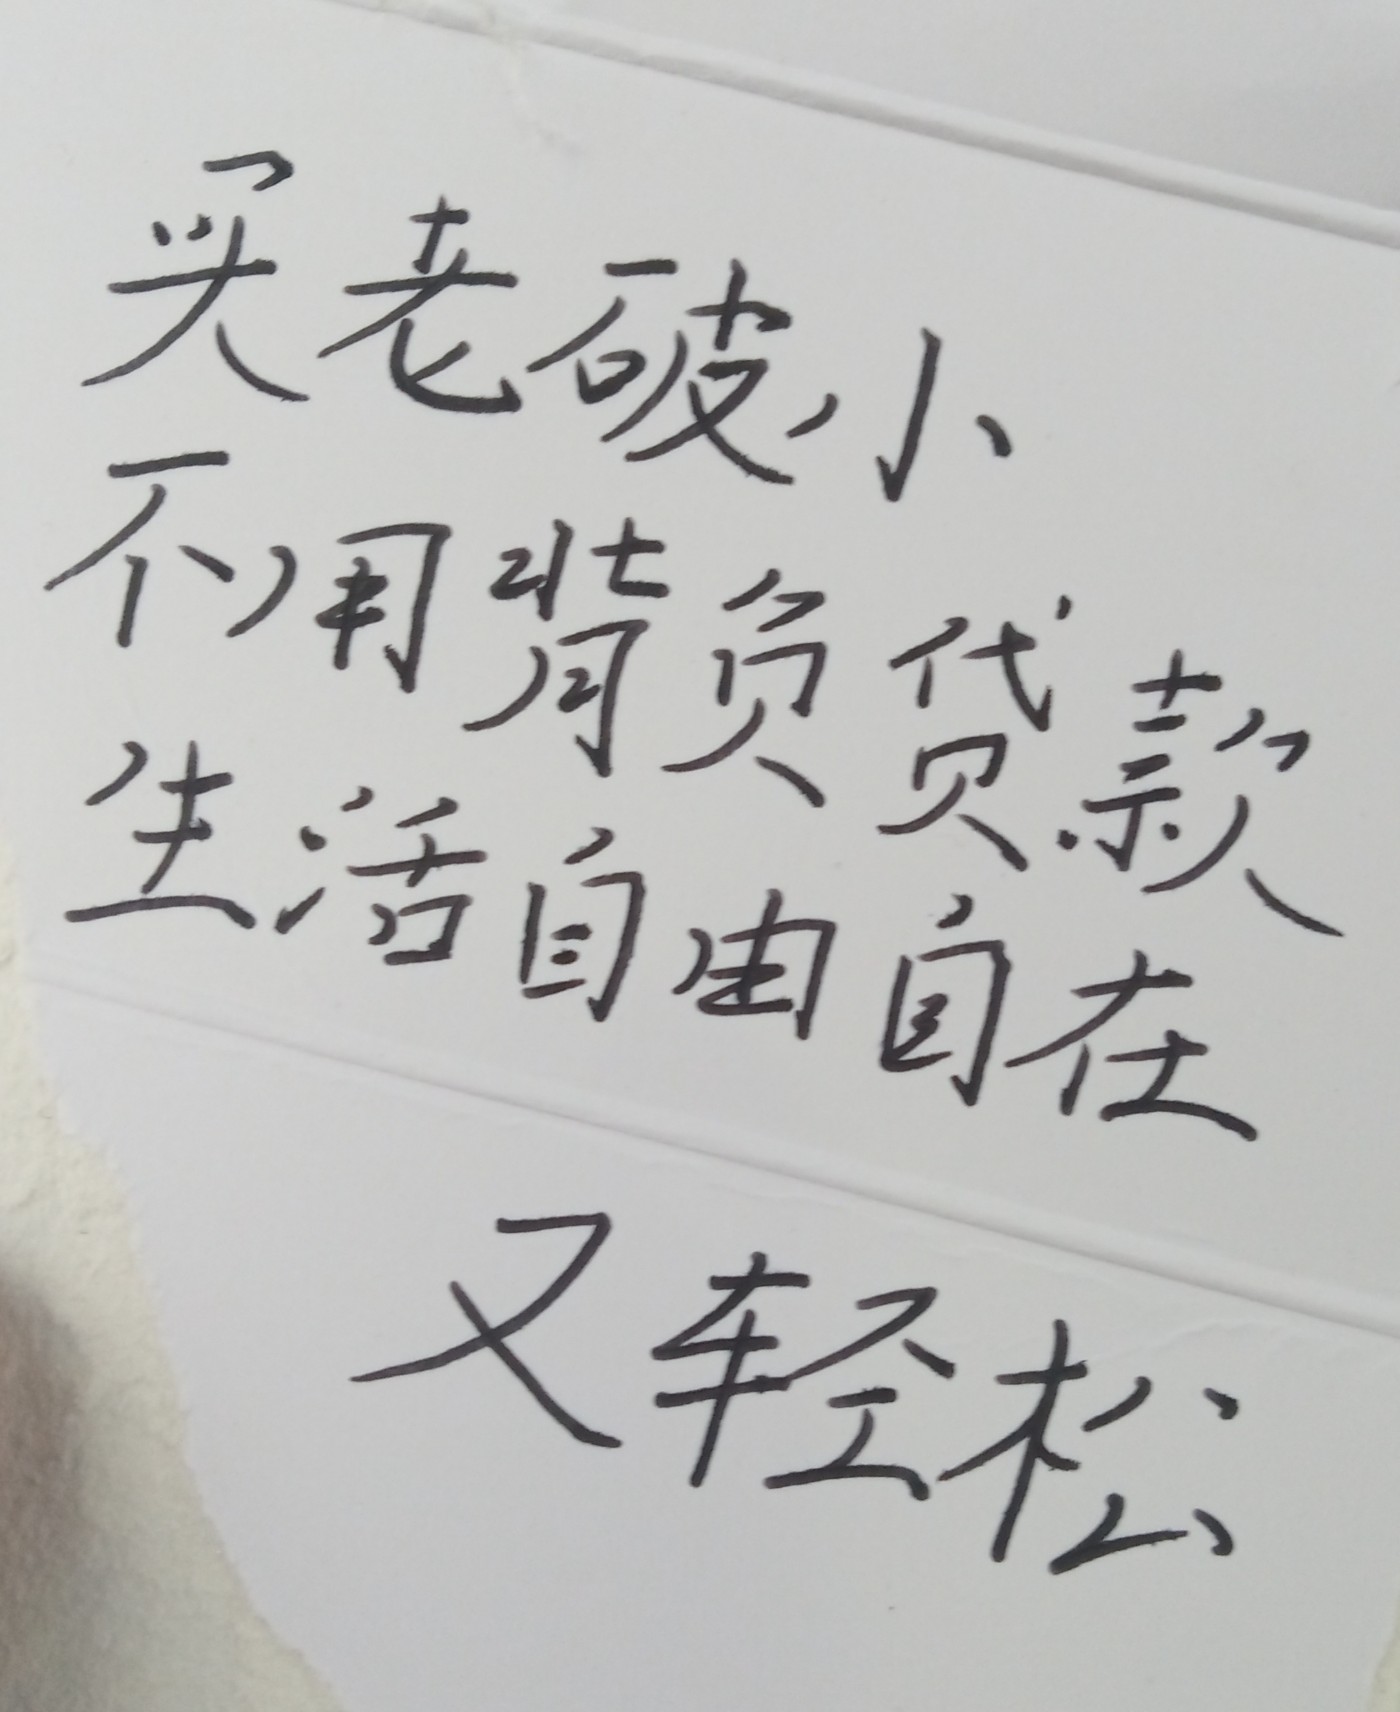 买老破小
不用背负贷款
生活自由自在
又轻松